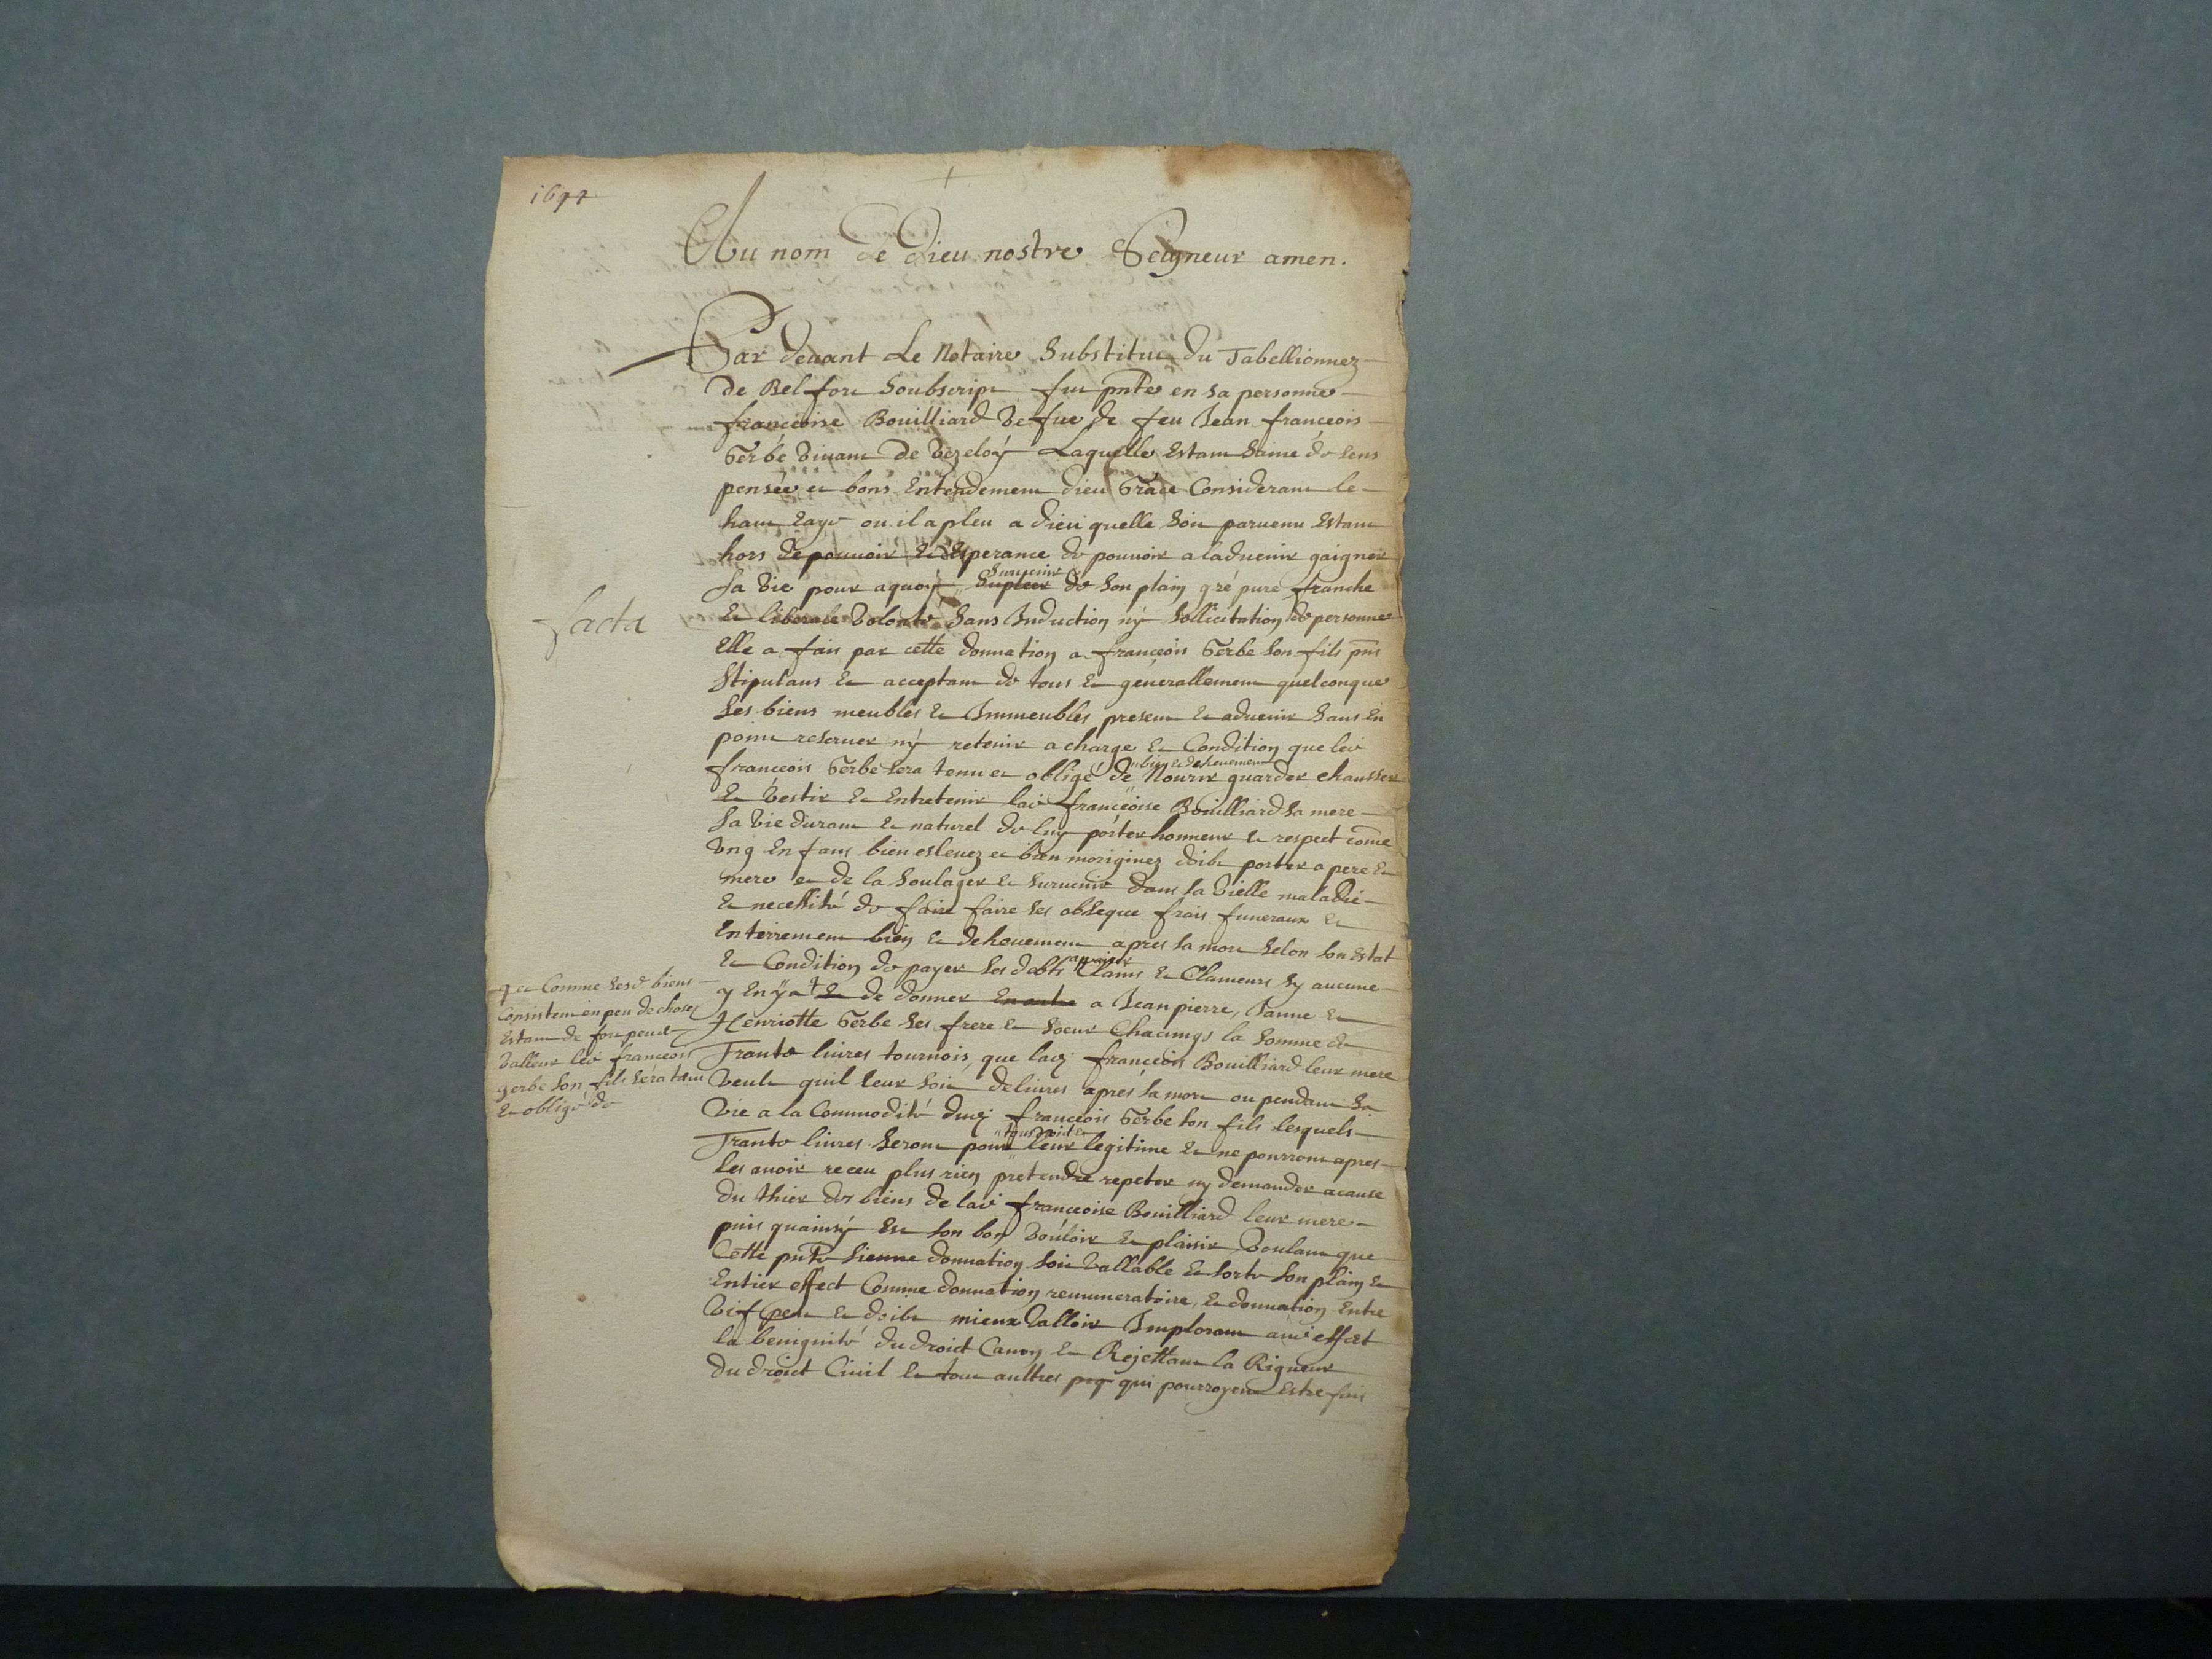 1694
Au nom de Dieu nostre Seigneur amen.
Par devant Le Notaire Substitut du Tabellionnez
de Belfort Soubscript fut pnte en sa personne
françoise Bouilliard vefue de feu Jean françois
Gerbé vivant de Vezeloÿ Laquelle Estant Saine de sens
pensée et bons Entendement dieu Grace Considerant le
haut eage ou il a pleu a Dieu quelle Soit parvenu Estant
hors de pouvoir et desperance de pouvoir a ladvenir gaigner
sa vie pour aquoy survenir
Supleer de Son plain gré pure franche
facta
et liberale volonté Sans Induction nÿ Sollicitation de personne
Elle a fait par cette donnation a françois Gerbe Son fils pnt
Stipulans et acceptant de tous et generallement quelconque
Ses biens meubles et Immeubles present et advenir Sans En
point reserver nÿ retenir a charge et Condition que led
françois Gerbe Sera tenu et obligé de bien et dehuement Nourir guarder chausser
et vestir et Entretenir lad françoise Bouilliard Sa mere
Sa vie durant et naturel de luy porter honneur et respect come
Ung Enfans bien eslevez et bien moriginez doibt porter a pere et
mere et de la Soulager et Survenir dans sa vielle maladie
et necessité de faire faire ses obseque frais funeraux et
Enterrement bien et dehuement apres sa mort Selon Son Estat
et Condition de payer Ses debts Clams et Clameurs Sy aucune
y En ÿ a + et de donner En outre a Jean pierre, Janne et
+ et Comme Sesd biens
Consistent en peu de choses
Estant de fort peut
valleur led françois
gerbe Son fils Sera tenu
et obligé de
Henriotte Gerbe Ses frere et Soeur Chacungs la Somme de
Trante livres tournois, que lad françois Bouilliard leur mere
veult quil leur Soit delivres apres sa mort ou pendant Sa
vie a la Commodité dud françois Gerbe Son fils lesquels
Trante livres Seront pour tous droict et leur legitime et ne pourront apres
les avoir receu plus rien pretendre repeter ny demander a cause
du thier des biens de lad françoise Bouilliard leur mere
puis quainsÿ Est Son bon vouloir et plaisir voulant que
Cette pnte Sienne donnation Soit vallable et Sorte Son plain et
Entier effect Comme donnation remuneratoire, et donnation Entre
vif peut et doibt mieux valloir Implorant aud effect
la benignité du droict Canon et Rejettant la Rigueur
du droict Civil et tout aultres qui pourroyent Estre fait